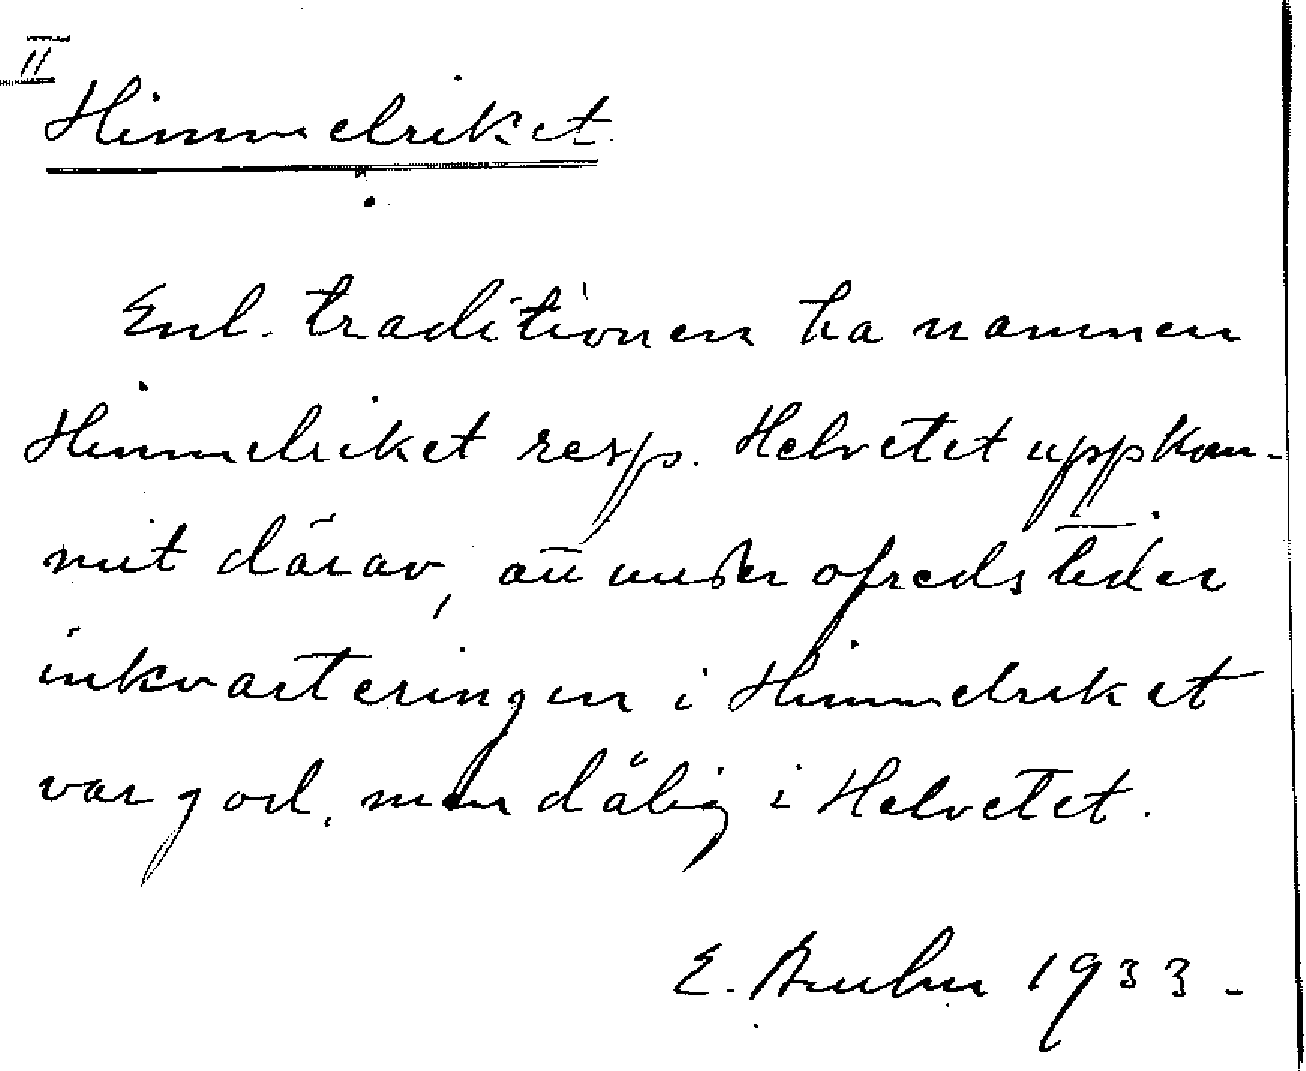 II
Himmelriket.
Enl. traditionen ha namnen
Himmelriket resp. Helvetet uppkom-
mit därav, att under ofredstider
inkvarteringen i Himmelriket
var god, men dålig i Helvetet.
E. 1933.